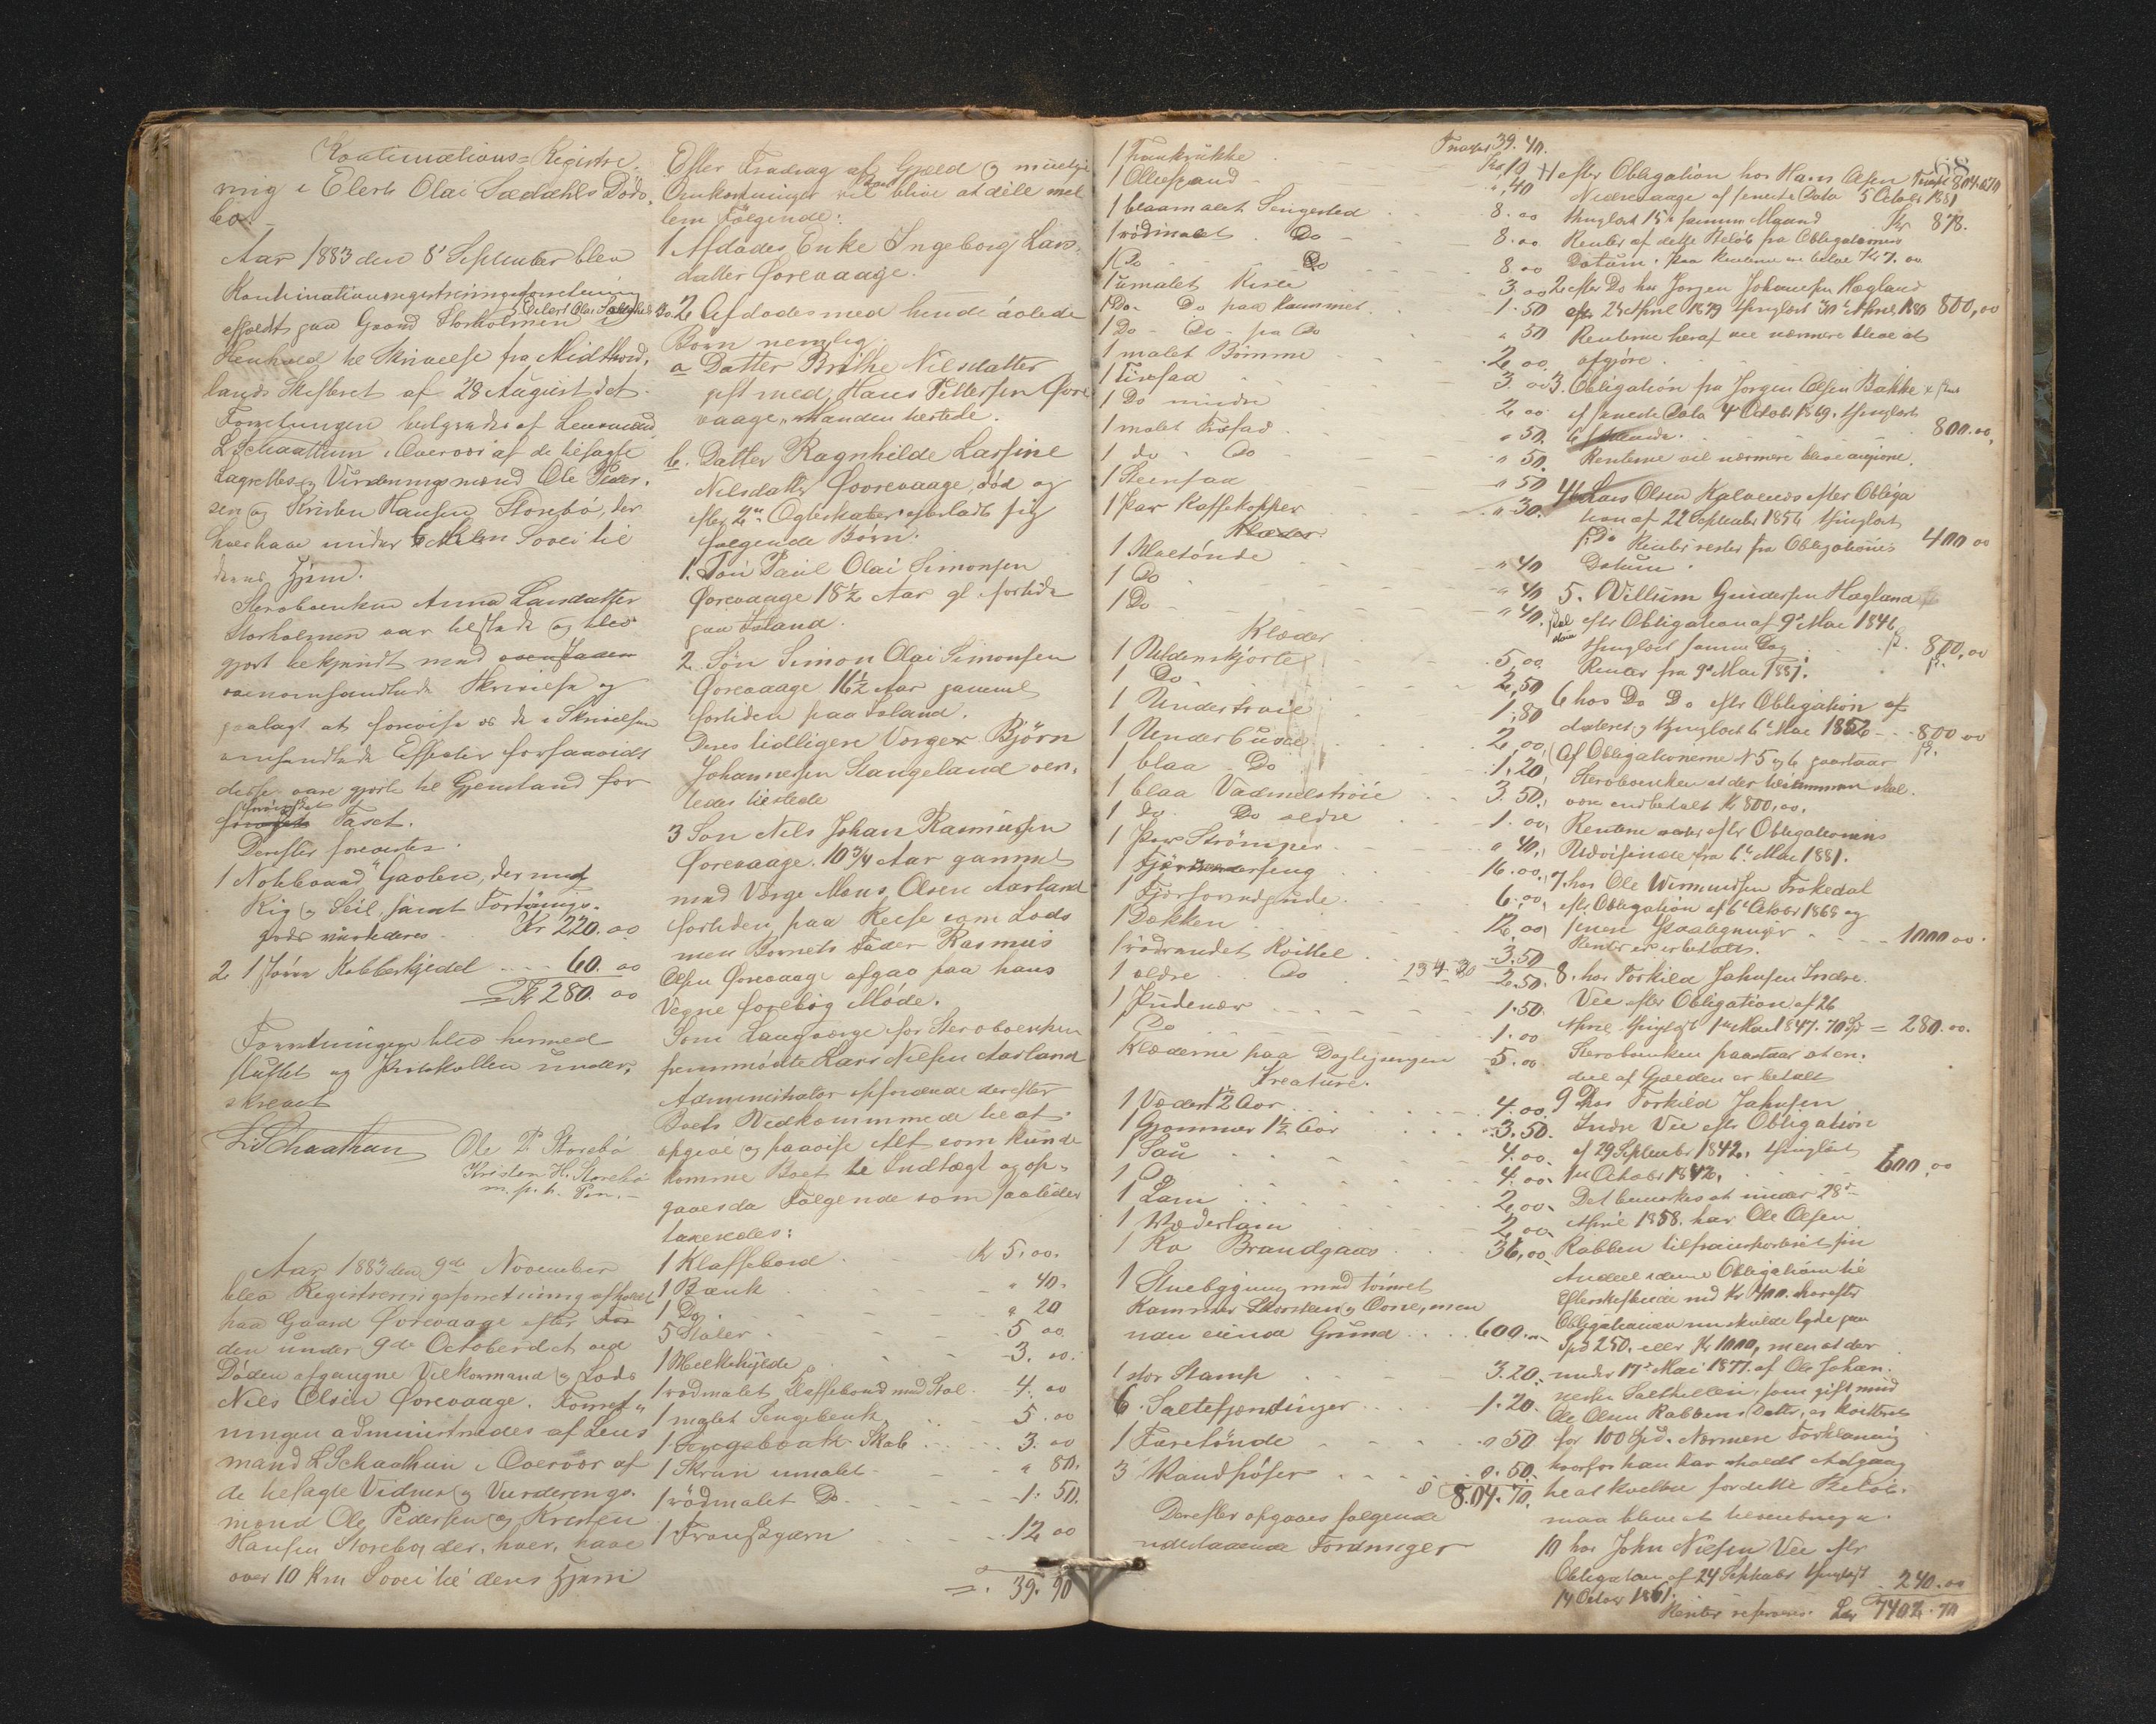 Kontinuations-Registre
ring i Elert Olai Sædahls Dødsbo
bo.
Aar 1883 den 8' September blev
Kontinuationsregistreringsforretning
afholdt paa Gaard Storholmen i
Henhold til Skrivelse fra Midthord,
lands Skifteret af 28 August d.A.
Forretningen betjentes af Lensmand
L. Schaathun i Overvær af de tilsagte
Lagrettes og Vurderingsmænd Ole Peder,
sen og Kristen Hansen Storebø, der
hver have under Sovei til
deres Hjem.
Sterboenken Anna Larsdatter
Storholmen var tilstede og blev
gjort bekjendt med
ovenomhandlede Skrivelse og
paalagt at forevise os de i Skrivelsen
omhandlede Effecter forsaavidt
disse vare gjorte til Gjenstand for
Taxt.
Derefter forevistes.
1 Notebaad, der med
Rig og Seil samt Fortøinings-
gods vurderes Kr 220.00
2 1 større Kobberkjedel 60.00
Kr 280.00
Forretningen blev hermed
sluttet og Protokollen under,
skrevet
L. Schaathun Ole P. Storebø
Kristen H. Storebø
m. p. h. Pen.
Aar 1883 den 9de November
blev Registreringsforretning afholdt
paa Gaard Forevaage efter
den under 9de October d.A. ved
Døden afgangne Vilkormand og Lods
Nils Olsen Forevaage. Forret,
ningen administredes af Lens
mand L Schaathun i Overvær af
de tilsagte Vidner og Vurderings-
mænd Ole Pedersen og Kristen
Hansen Storebø, der, hver, have
over 10 Km Sovei til deres Hjem
Efter Fradrag af Gjæld og muelige
Omkostninger vil blive at dele mel
lem Følgende:
1 Afdødes Enke Ingeborg Lars,
datter Forevaage.
2 Afdødes med hende avlede
Børn nemlig:
a Datter Brithe Nilsdatter
gift med Hans Pettersen Fore
vaage, Manden tilstede.
b. Datter Ragnhilde Larsine
Nilsdatter Forevaage, død og
efter 2de efterladt sig
følgende Børn:
1. Søn Paul Olai Simonsen
Forevaage 18½ Aar gl fortiden
paa Island.
2. Søn Simon Olai Simonsen
Forevaage 16½ Aar gammel
fortiden paa Island.
Deres tidligere Værge Bjørn
Johannesen Stangeland ven,
tedes tilstede
3 Søn Nils Johan Rasmussen
Forevaage. 10¾ Aar gammel
med Værge Mons Olsen Aarland
fortiden paa Reise som Lods
men Barnets Fader Rasmus
Olsen Forevaage afgav paa hans
Vegne foreløbig Møde.
Som Laugværge for Sterboenken
fremmødte Lars Nilsen Aarland
Administrator opfordrede derefter
Boets Vedkommende til at
opgive og paavise Alt som kunde
komme Boet til Indtægt og op,
gaves da Følgende som saaledes
taxeredes:
1 Klaffebord Kr 5.00.
1 Bænk " 40.
1 Do " 20
5 Stoler 5 00
1 Melkehylde 3. 00.
1 rødmalet Klaffebord med Stol 4. 00
1 malet Sengebenk 5.00
1 Skab 3.00
1 Skrin umalet " 80.
1 rødmalet Do 1. 50.
1 12 00
39. 90
Transp 39. 40.
1
1 Ollespand " 40
1 blaamalet Sengested 8.00
1 rødmalet Do 8.00
1 Do Do 8.00
1 umalet Kiste 3 00
1 Do Do paa Rammet 1.50
1 Do - Do - pa Do " 50
1 malet Bømme 2.00
1 3.00
1 Do mindre 2 00
1 malet " 50.
1 do Do " 50.
1 Steenfad " 50
1 Par Kaffekopper " 30.
1 Maltønde " 40
1 Do " 40
1 Do " 40.
Klæder
1 Uldenskjorte 5,00
1 Do 2,50
1 Undertrøie 1,80
1 Underbuxe 2,00
1 blaa Do 1.20
1 blaa Vadmelstrøie 3.50
1 do Do ældre 1.00
1 Par Strømper " 40
1 16.00
1 6.00
1 Dækken 12.00
1 rødrandet Kvittel 3.50
1 ældre Do 2.50.
1 Pudevær 1.50.
Do 1.00
Klæderne paa Dagligsengen 5.00
Kreature.
1 Væder 1½ Aar 4.00
1 Gjommer 1½ Aar 3.50.
1 Sau 4.00
1 Do 4.00
1 Lam 2,00
1 Væderlam 2,00
1 Ko Brandgaas 36,00
1 Stuebygning med tømret
Kammer Skorsten og Ovne, men
uden eiende Grund 600.00
1 stor Stamp 3.20.
6. Saltefjerdinger 1.20.
1 Faretønde " 50
3 0.50.
804.70.
Derefter opgaves følgende
udestaaende Fordringer
68
Transp 804.70
1 efter Obligation hos Hans Olsen
Nedrevaage af seneste Data 5 Octob 1881
thinglæst 15de samme Maaned Kr 878.
Renter af dette Beløb fra Obligationens
Datum. paa Renterne er betalt Kr 7.00
2 efter Do hos Jørgen Johannesen Hægland
af 24 April 1879 thinglæst 30te April 1880 800,00
Renterne heraf vil nærmere blive at
afgjøre.
3. Obligation fra Jørgen Olsen Bakke
af seneste Data 4 Octob 1869. thinglæst
800.00,
Renterne vil nærmere blive angivne.
4 Lars Olsen Kalvenes efter Obliga
tion af 22 September 1856 thinglæst
400 00
Renter rester fra Obligationens
Datum.
5. Villum Gundersen Hægland
efter Obligation af 9de Mai 1846
thinglæst samme Dag 800,00
Renter fra 9de Mai 1881.
6 hos Do Do efter Obligation af
dateret og thinglæst 6te Mai 1852 800 00
(Af Obligationerne N 5 og 6 paastaar
Sterboenken at der tilsammen skal
være indbetalt Kr 800,00.
Renterne efter Obligationens
Udvisende fra 6te Mai 1881.
7. hos Ole Wermundsen Trokedal
efter Obligation af 6te Octob 1868 og
senere Paategninger 1000 00.
Renter er betalt.
8. hos Torkild Jahnsen Indre
Vee efter Obligation af 26
April thinglæst 1ste Mai 1847. 70 Spd = 280.00.
Sterboenken paastaar at en
deel af Gjælden er betalt
9 hos Torkild Jahnsen
Indre Vee efter Obligation
af 29 September 1842, thinglæst
1ste October 1842. 600,00
Det bemærkes at under 28de
April 1858. har Ole Olsen
Rabben
Andeel i denne Obligation til
Efterskiftende med Kr 400. hvorefter
Obligationen nu skulde lyde paa
Spd 250. eller Kr 1000, men at der
under 17de Mai 1877. af Ole Johan,
nesen Salthellen, som gift med
Ole Olsen Rabbens Datter, er kvitteret
for 100 Spd. Nærmere Forklaring
hvorfor han har havt Adgang
til at kvittere for dette Beløb.
maa blive at tilveiebringe.
10 hos John Nilsen Vee efter
Obligation af 24 September thinglæst
14 October 1861. 240.00
Renter Kr 7402.70